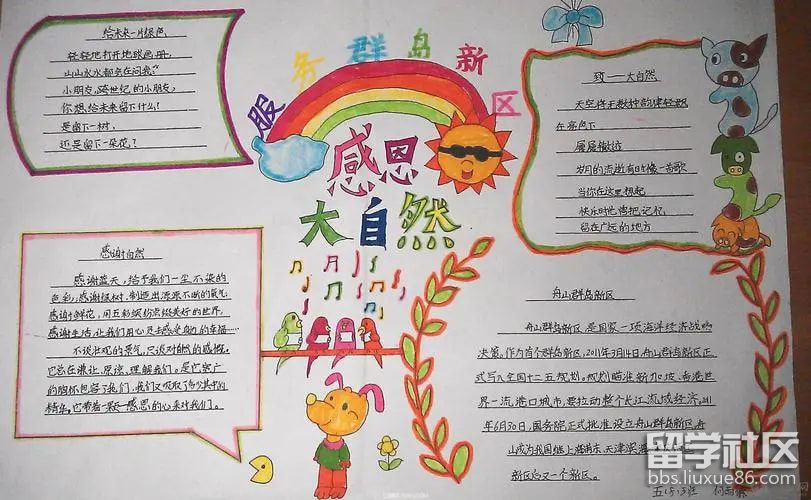 服务群岛新区
感恩
大自然
给未来一片绿色
轻轻地打开地球画册,
山山水水都会在问我?
小朋友,跨世纪的小朋友,
你想给未来留下什么?
是留下一树,
还是留下一朵花?
致一一大自然
天空将无数种韵律轻歌
在亮白下
层层撤远
岁月的流逝有时像一首歌
当你在这里想起
快乐时也请把记忆
留在广远的地方
感谢自然
感谢蓝天,给予我们一尘不染的
色彩;感谢绿树,制造出源源不断的氧气;
感谢鲜花,用五彩缤纷
世界,
感谢生活,让我们用心
的幸福……
不谈壮观的景气,只谈对自然的感慨。
它总在谦让、原谅、理解我们。是它宽广
的胸怀包容了我们,我们又吸取了
精华。它带着一颗感恩的心来对我们。
舟山群岛新区
舟山群岛新区,是国家一项海洋经济战略
决策。作为首个群岛新区,2011年3月14日,舟山群岛新区正
式写入全国十二五规划。规划瞄准新加坡、香港世
界一流港口城市,要拉动整个长江流域经济。2011
年6月30日,国务院正式批准设立舟山群岛新区,舟
山成为我国继上海浦东、天津滨海
新区后又一个新区。
五(3)班
留学社区
bbs.liuxue86.com